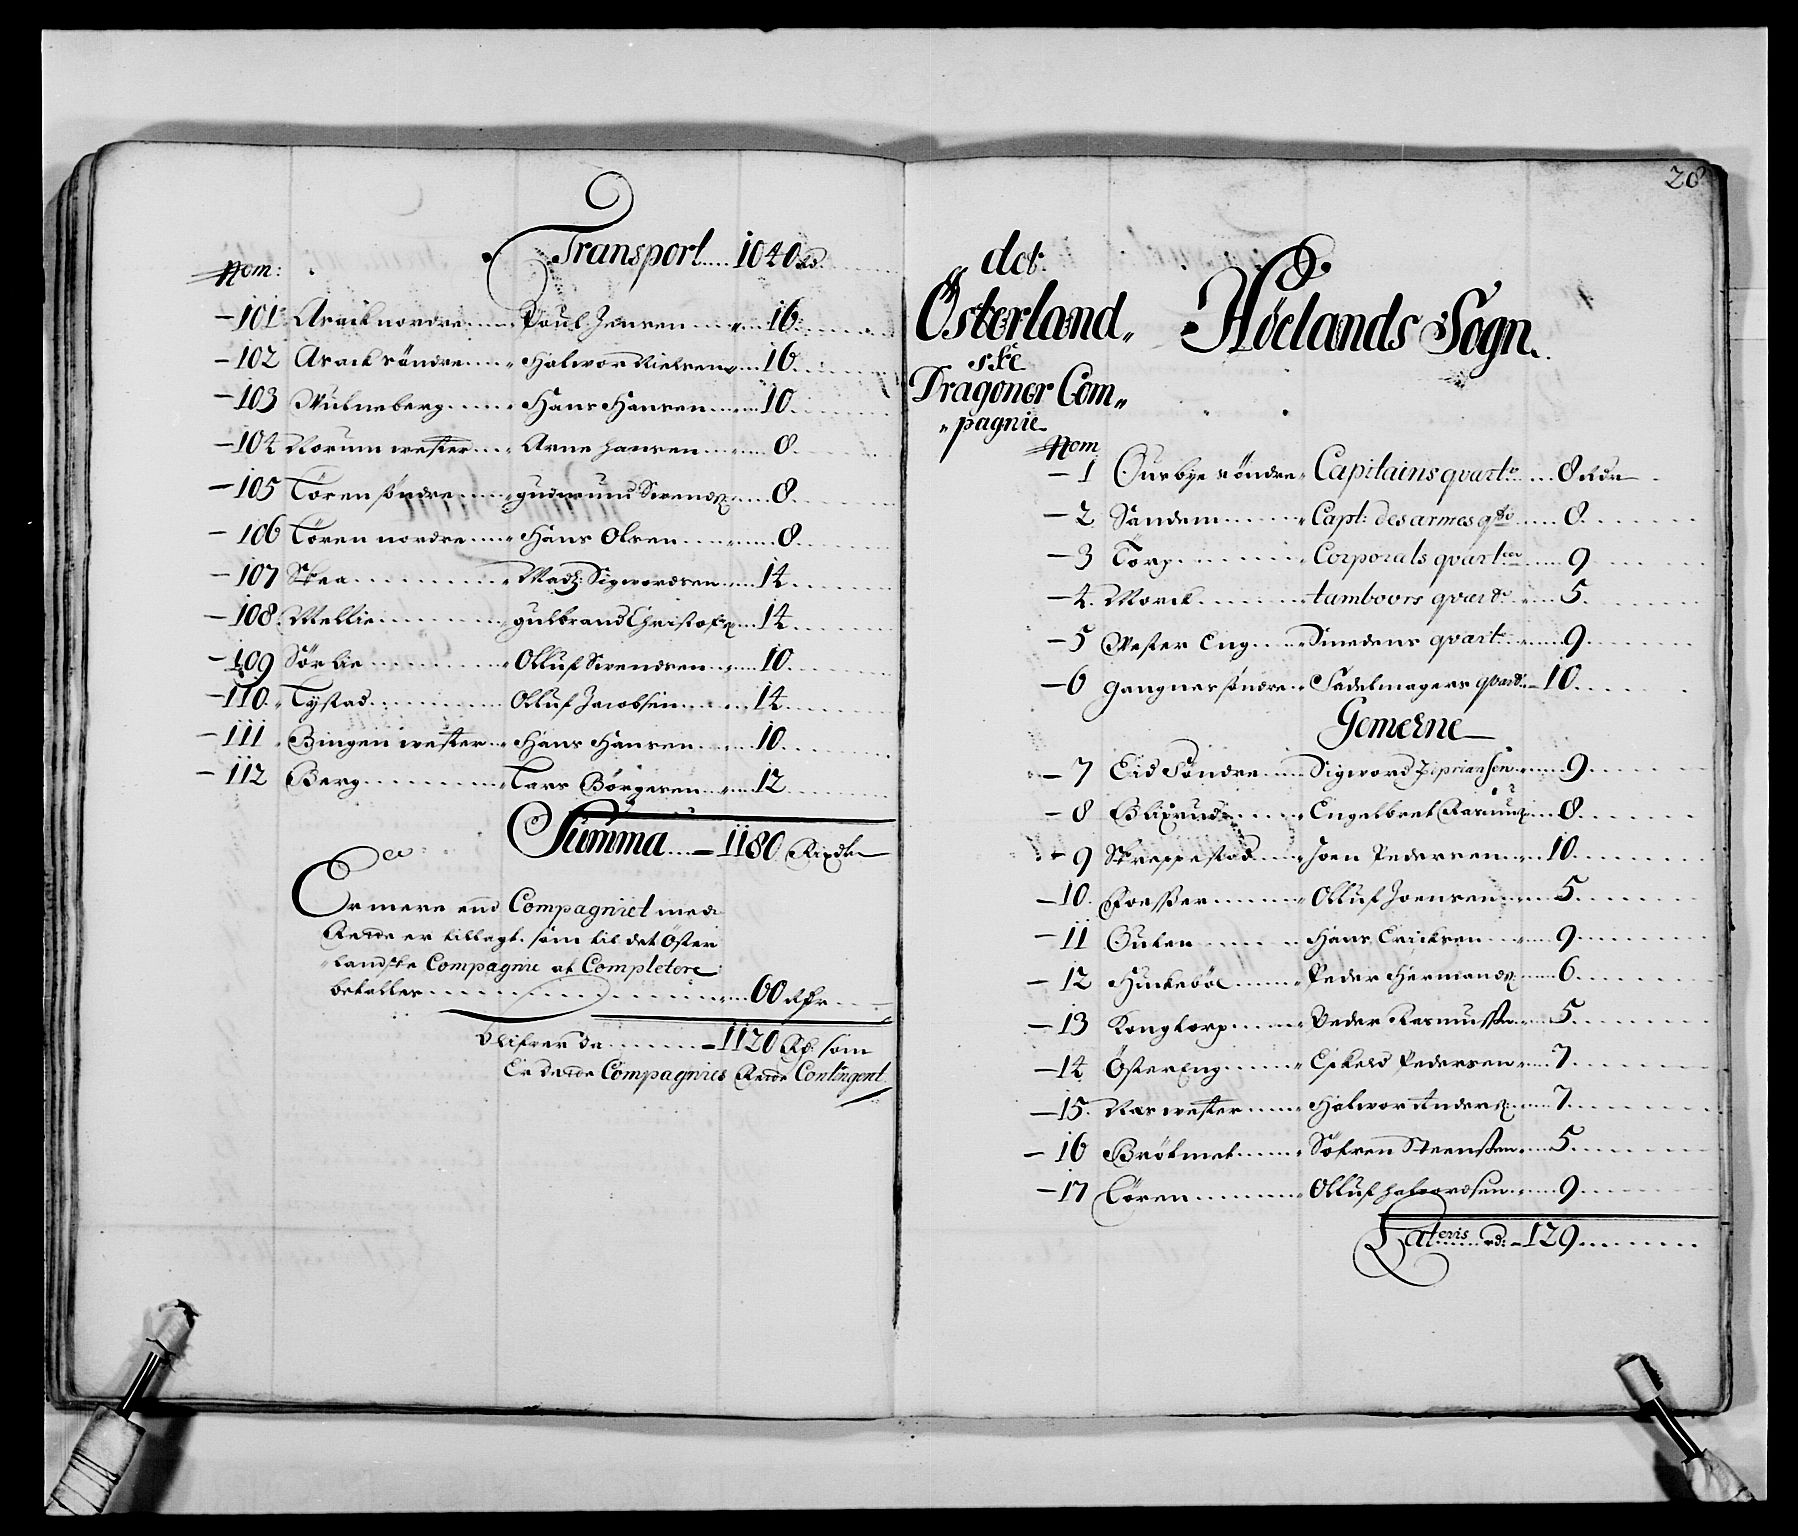 Transport 1040 Rd.
Nom:
101 Asack nordre Poul Jensen 16
102 Asack söndre Halwor Nielsen 16
103 Mulneberg Hans Hansen 10
104 Norum wester Arne Hansen 8
105 Tören söndre Gudmund Swends: 8
106 Tören nordre Hans Olsen 8
107 Skea Madz Sigwordsen 14
108 Mellie Gulbrand Christofs: 14
109 Sörlie Olluf Swendsen 10
110 Tystad Olluf Jacobsen 14
111 Bingen wester Hans Hansen 10
112 Berg Lars Börgesen 12
Summa 1180 Rixdlr
Er mere end Compagniet med
Rende er tillagt som til det Öster
landske Compagnie at Completere
betaller 60 Rdr
blifver da 1120 Rd: som
Er dende Compagnies Rende Contingent
28
det
Österland„
ske
Dragoner Com„
„pagnie
Höelands Sogn
Nom
1 Ourbye söndre Capitains qvartr 8 Rdr
2 Sandem Capt: des armes qtr 8
3 Torp Corporals qvartier 9
4 Morck tambours qvartr 5
5 Wester Eng Smedens qvartr 9
6 Gangnes söndre Sadelmagers qvartr 10
Gemerne
7 Eid Söndre Sigword Zipriansen 9
8 Blixrud Engelbret Rasmus: 8
9 Skreppestad Joen Pedersen 10
10 Fosser Olluf Joensen 5
11 Outen Hans Ericksen 9
12 Huckeböl Peder Hermands: 6
13 Kongtorp Peder Rasmussen 5
14 Öster Eng Eskeld Pedersen 7
15 Nas wester Halwor Anders: 7
16 Brötmet Söfren Steensen 5
17 Lören Olluf Halwordsen 9
Lateris rd: 129